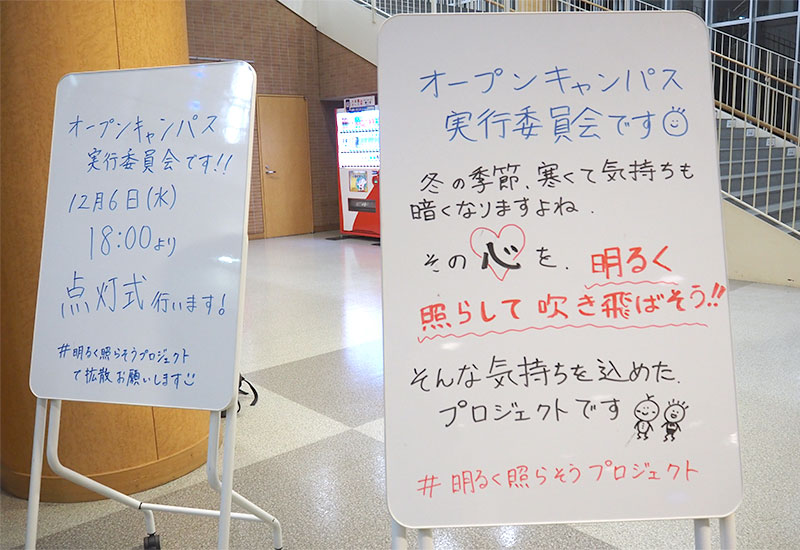 オープンキャンパス
実行委員会です!!
12月6日(水)
18:00より
点灯式 行います!
#明るく照らそうプロジェクト
で拡散お願いします
オープンキャンパス
実行委員会です
冬の季節、寒くて気持ちも
暗くなりますよね.
その心を、明るく
照らして吹き飛ばそう!!
そんな気持ちを込めた、
プロジェクトです
#明るく照らそうプロジェクト